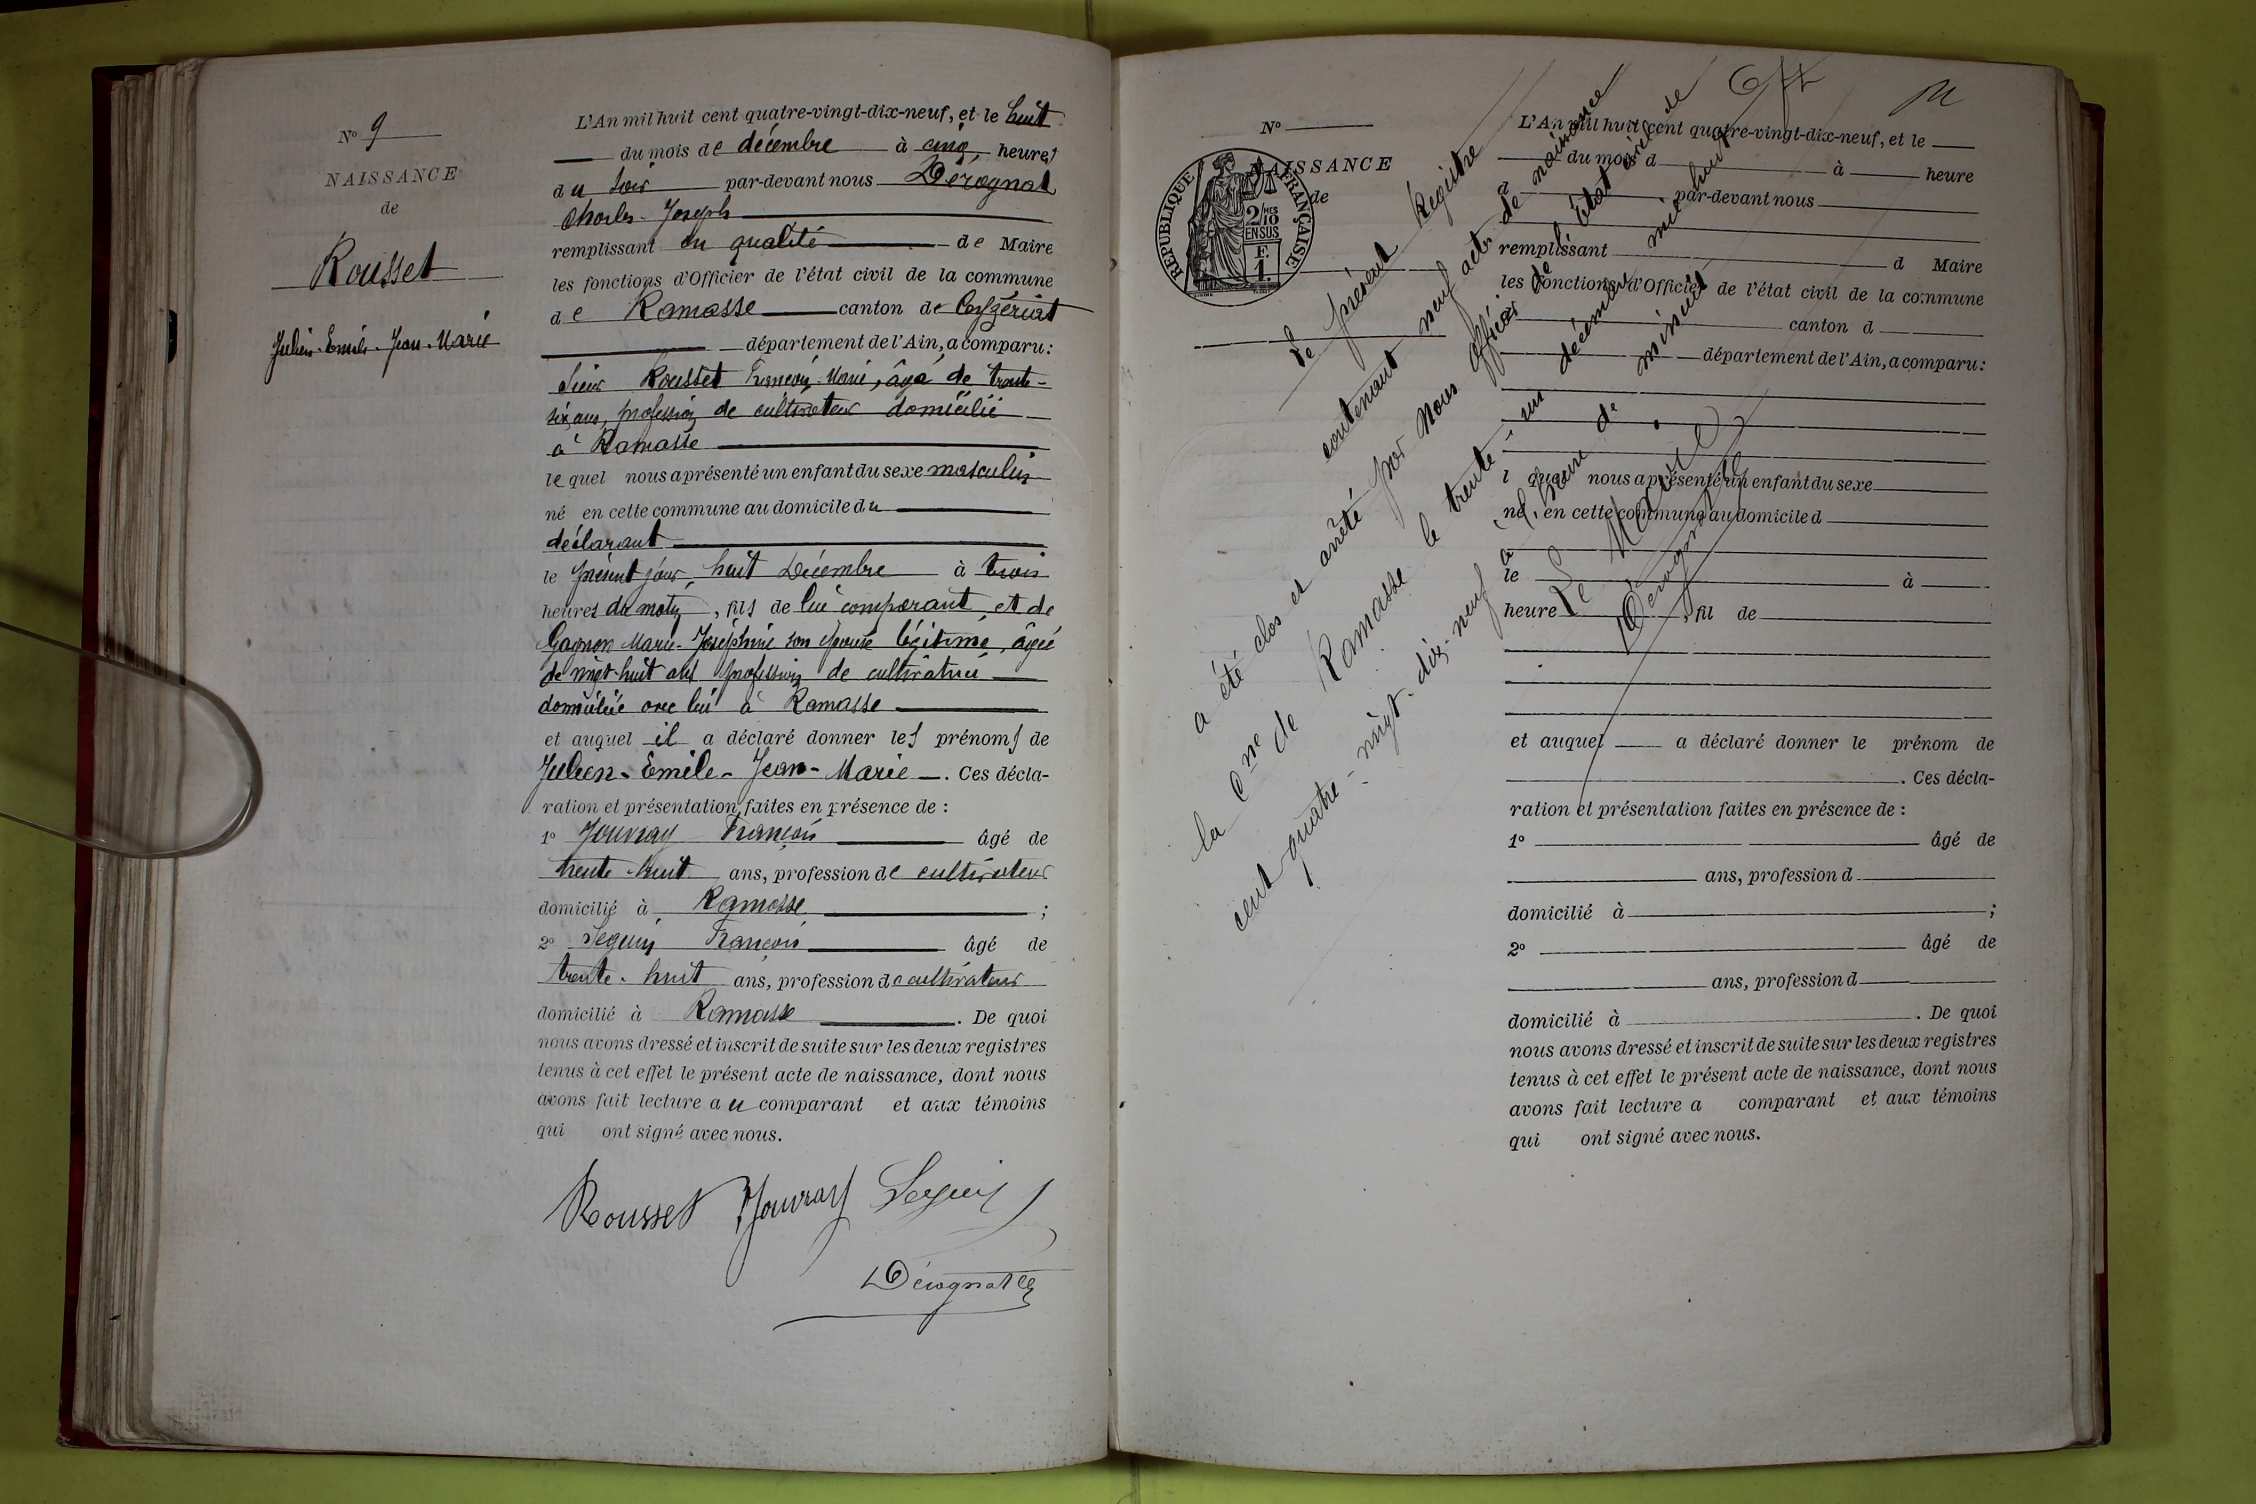 N° 9
NAISSANCE
de
Rousset
Julien-Emile-Jean-Marie
L'An mil huit cent quatre-vingt-dix-neuf, et le huit
du mois de décembre à cinq heures
du soir par-devant nous Dérognat
Charles-Joseph
remplissant en qualité de Maire
les fonctions d'Officier de l'état civil de la commune
de Ramasse canton de Ceyzériat
département de l'Ain, a comparu:
sieur Rousset François-Marie, âgé de trente-
six ans, profession de cultivateur domicilié
à Ramasse
lequel nous a présenté un enfant du sexe masculin
né en cette commune au domicile du
déclarant
le présent jour, huit Décembre à trois
heures du matin, fils de lui comparant et de
Gagnon Marie-Joséphine son épouse légitime, âgée
de vingt-huit ans profession de cultivatrice
domiciliée avec lui à Ramasse
et auquel il a déclaré donner les prénoms de
Julien-Emile-Jean-Marie. Ces décla-
ration et présentation faites en présence de :
1° Jouvray François âgé de
trente-huit ans, profession de cultivateur
domicilié à Ramasse ;
2° Seguin François âgé de
trente-huit ans, profession de cultivateur
domicilié à Ramasse. De quoi
nous avons dressé et inscrit de suite sur les deux registres
tenus à cet effet le présent acte de naissance, dont nous
avons fait lecture au comparant et aux témoins
qui ont signé avec nous.
Rousset Jouvray Seguin
Dérognat
N°
NAISSANCE
de
RÉPUBLIQUE FRANÇAISE
2/10 MES
EN SUS
F.
1.
L'An mil huit cent quatre-vingt-dix-neuf, et le
du mois d à heure
d par-devant nous
remplissant d Maire
les fonctions d'Officier de l'état civil de la commune
canton d
département de l'Ain, a comparu:
l quel nous a présenté un enfant du sexe
né en cette commune au domicile d
le à
heure , fil de
et auquel a déclaré donner le prénom de
. Ces décla-
ration et présentation faites en présence de :
1° âgé de
ans, profession d
domicilié à ;
2° âgé de
ans, profession d
domicilié à . De quoi
nous avons dressé et inscrit de suite sur les deux registres
tenus à cet effet le présent acte de naissance, dont nous
avons fait lecture a comparant et aux témoins
qui ont signé avec nous.
Le présent Registre
contenant neuf actes de naissance
a été clos et arrêté par nous officier de l'état civil de
la Cne de Ramasse le trente-un décembre mil huit
cent quatre-vingt-dix-neuf à l'heure de minuit.
Le Maire
Dérognat